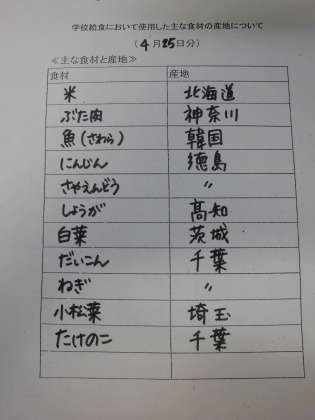 学校給食において使用した主な食材の産地について
(4月25日分)
≪主な食材と産地≫
食材 産地
米 北海道
ぶた肉 神奈川
魚(さわら) 韓国
にんじん 徳島
さやえんどう 〃
しょうが 高知
白菜 茨城
だいこん 千葉
ねぎ 〃
小松菜 埼玉
たけのこ 千葉